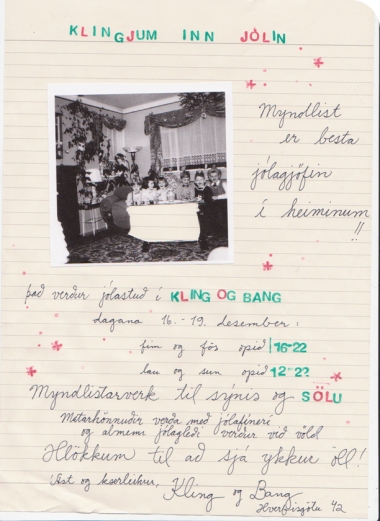 KLINGJUM INN JÓLIN
Myndlist
er besta
jólagjöfin
í heiminum
!!
það verður jólastuð í KLING OG BANG
dagana 16.-19. desember:
fim og fös opið 16-22
lau og sun opið 12-22
Myndlistarverk til sýnis og SÖLU
Matarhönnuðir verða með jólafíneri
og almenn jólagleði verður við völd!
Hlökkum til að sjá ykkur öll!
Ást og kærleikur,
Kling og Bang
Hverfisgötu 42